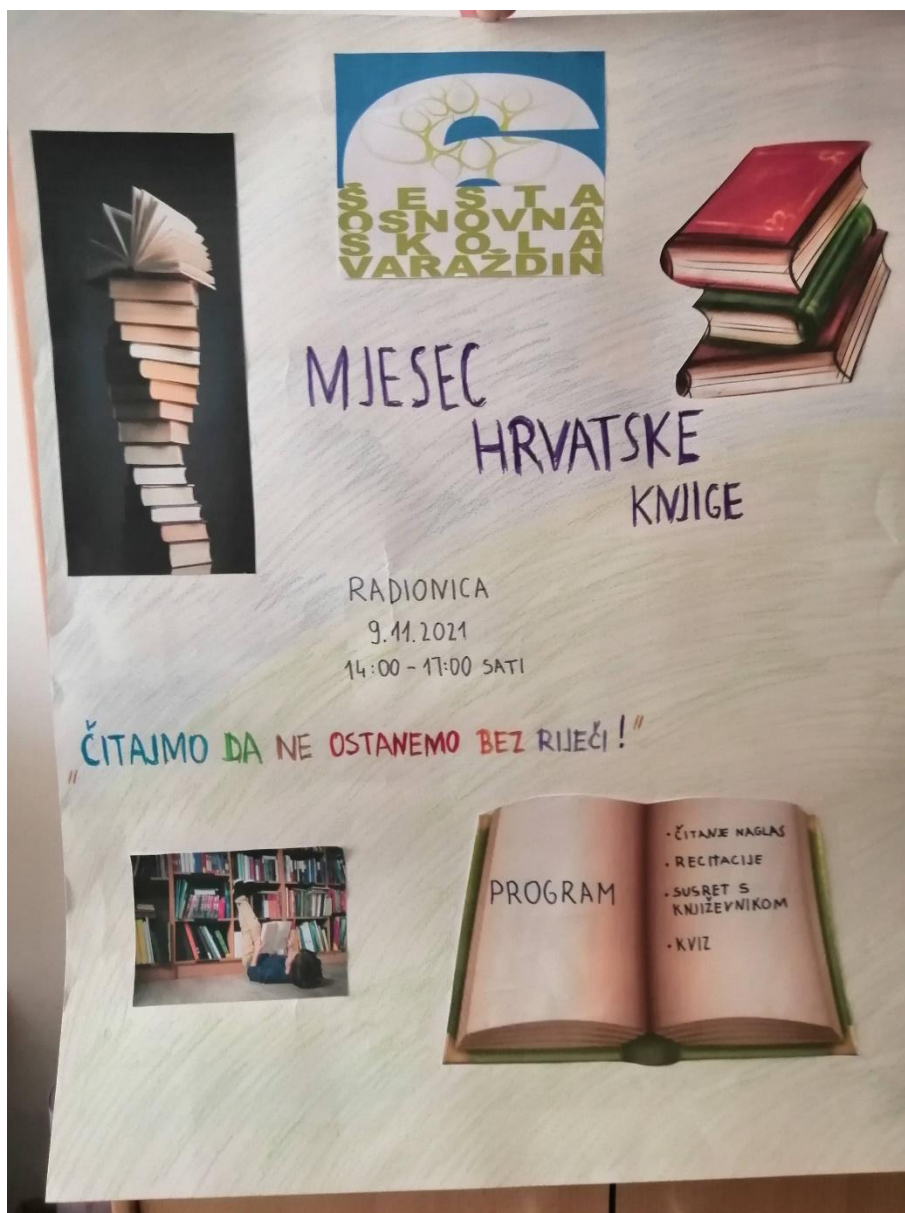 ŠESTA
OSNOVNA
ŠKOLA
VARAŽDIN
MJESEC
HRVATSKE
KNJIGE
RADIONICA
9.11.2021
14:00 - 17:00 SATI
"ČITAJMO DA NE OSTANEMO BEZ RIJEČI!"
PROGRAM
• ČITANJE NAGLAS
• RECITACIJE
• SUSRET S
KNJIŽEVNIKOM
• KVIZ